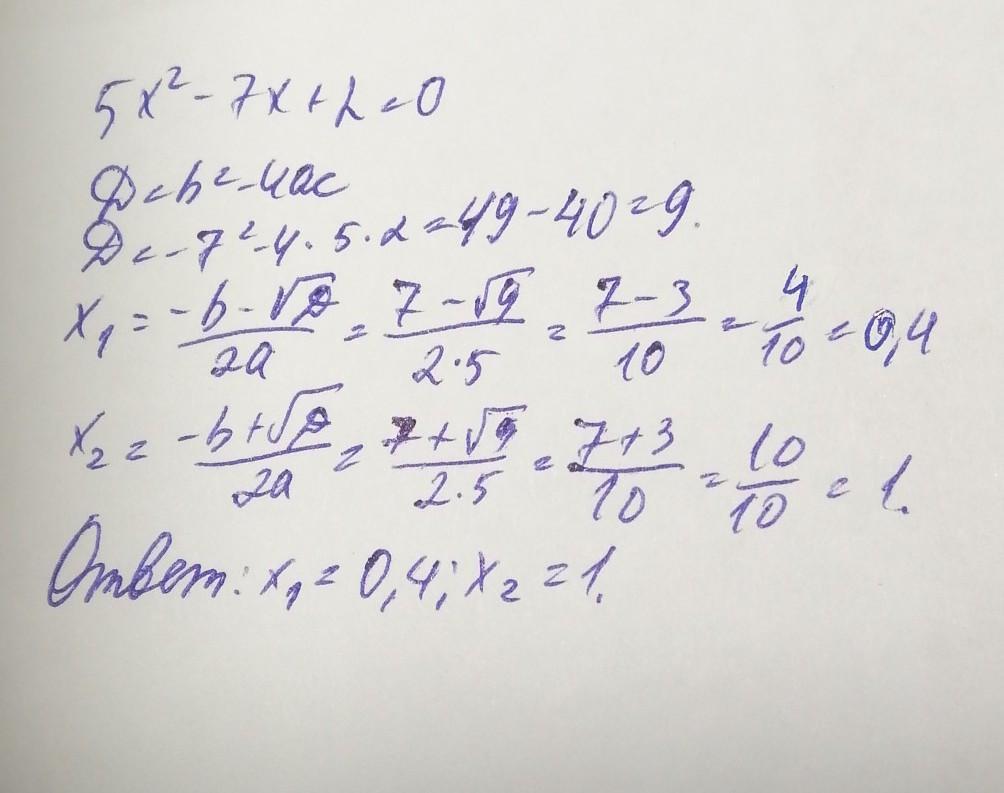 5x² - 7x + 2 = 0
D = b² - 4ac
D = -7² - 4 · 5 · 2 = 49 - 40 = 9.
x₁ = (-b - √D)/(2a) = (7 - √9)/(2·5) = (7 - 3)/10 = 4/10 = 0,4
x₂ = (-b + √D)/(2a) = (7 + √9)/(2·5) = (7 + 3)/10 = 10/10 = 1.
Ответ: x₁ = 0,4; x₂ = 1.